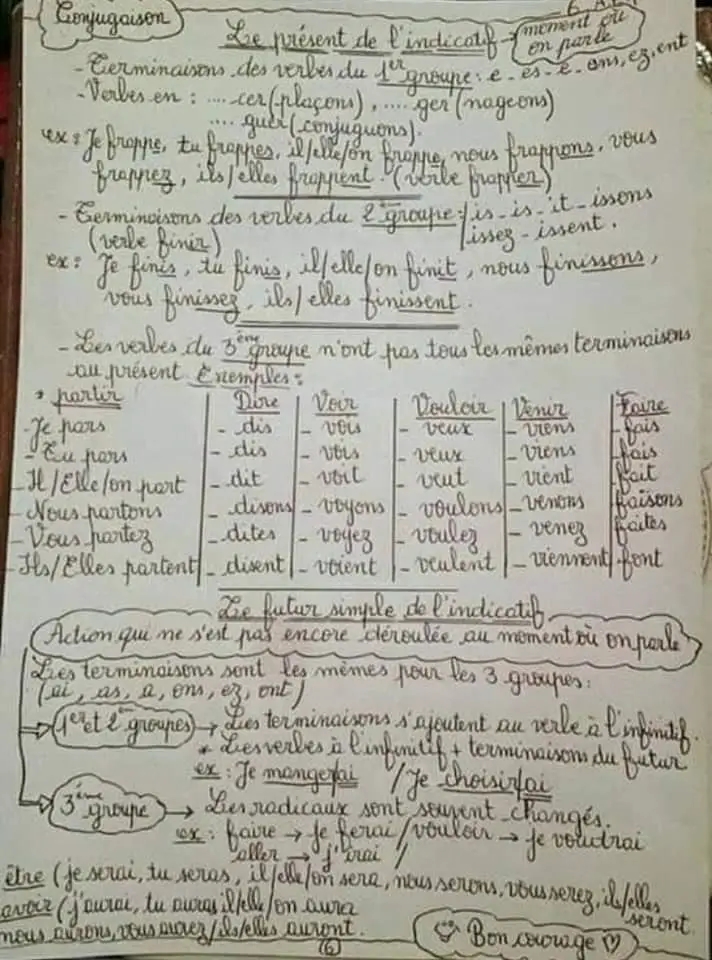 Conjugaison
Le présent de l'indicatif → moment où
on parle
- Terminaisons des verbes du 1er groupe : e - es - e - ons, ez, ent
- Verbes en : .... cer (plaçons) , .... ger (nageons)
.... guer (conjuguons).
ex : Je frappe, tu frappes, il/elle/on frappe, nous frappons, vous
frappez, ils/elles frappent. (verbe frapper)
- Terminaisons des verbes du 2ème groupe : is - is - it - issons
(verbe finir) issez - issent.
ex : Je finis, tu finis, il/elle/on finit, nous finissons,
vous finissez, ils/elles finissent.
- Les verbes du 3ème groupe n'ont pas tous les mêmes terminaisons
au présent Exemples :
* partir Dire Voir Vouloir Venir Faire
- Je pars - dis - vois - veux - viens - fais
- Tu pars - dis - vois - veux - viens - fais
- Il/Elle/on part - dit - voit - veut - vient - fait
- Nous partons - disons - voyons - voulons - venons - faisons
- Vous partez - dites - voyez - voulez - venez - faites
- Ils/Elles partent - disent - voient - veulent - viennent - font
Le futur simple de l'indicatif
Action qui ne s'est pas encore déroulée au moment où on parle
Les terminaisons sont les mêmes pour les 3 groupes :
(ai, as, a, ons, ez, ont)
1er et 2ème groupes → Les terminaisons s'ajoutent au verbe à l'infinitif.
* Les verbes à l'infinitif + terminaisons du futur
ex : Je manger/ai / Je choisir/ai
3ème groupe → Les radicaux sont souvent changés.
ex : faire → je ferai / vouloir → je voudrai
aller → j'irai /
être (je serai, tu seras, il/elle/on sera, nous serons, vous serez, ils/elles
seront.
avoir (j'aurai, tu auras il/elle/on aura
nous aurons, vous aurez/ils/elles auront.
6
Bon courage ♡